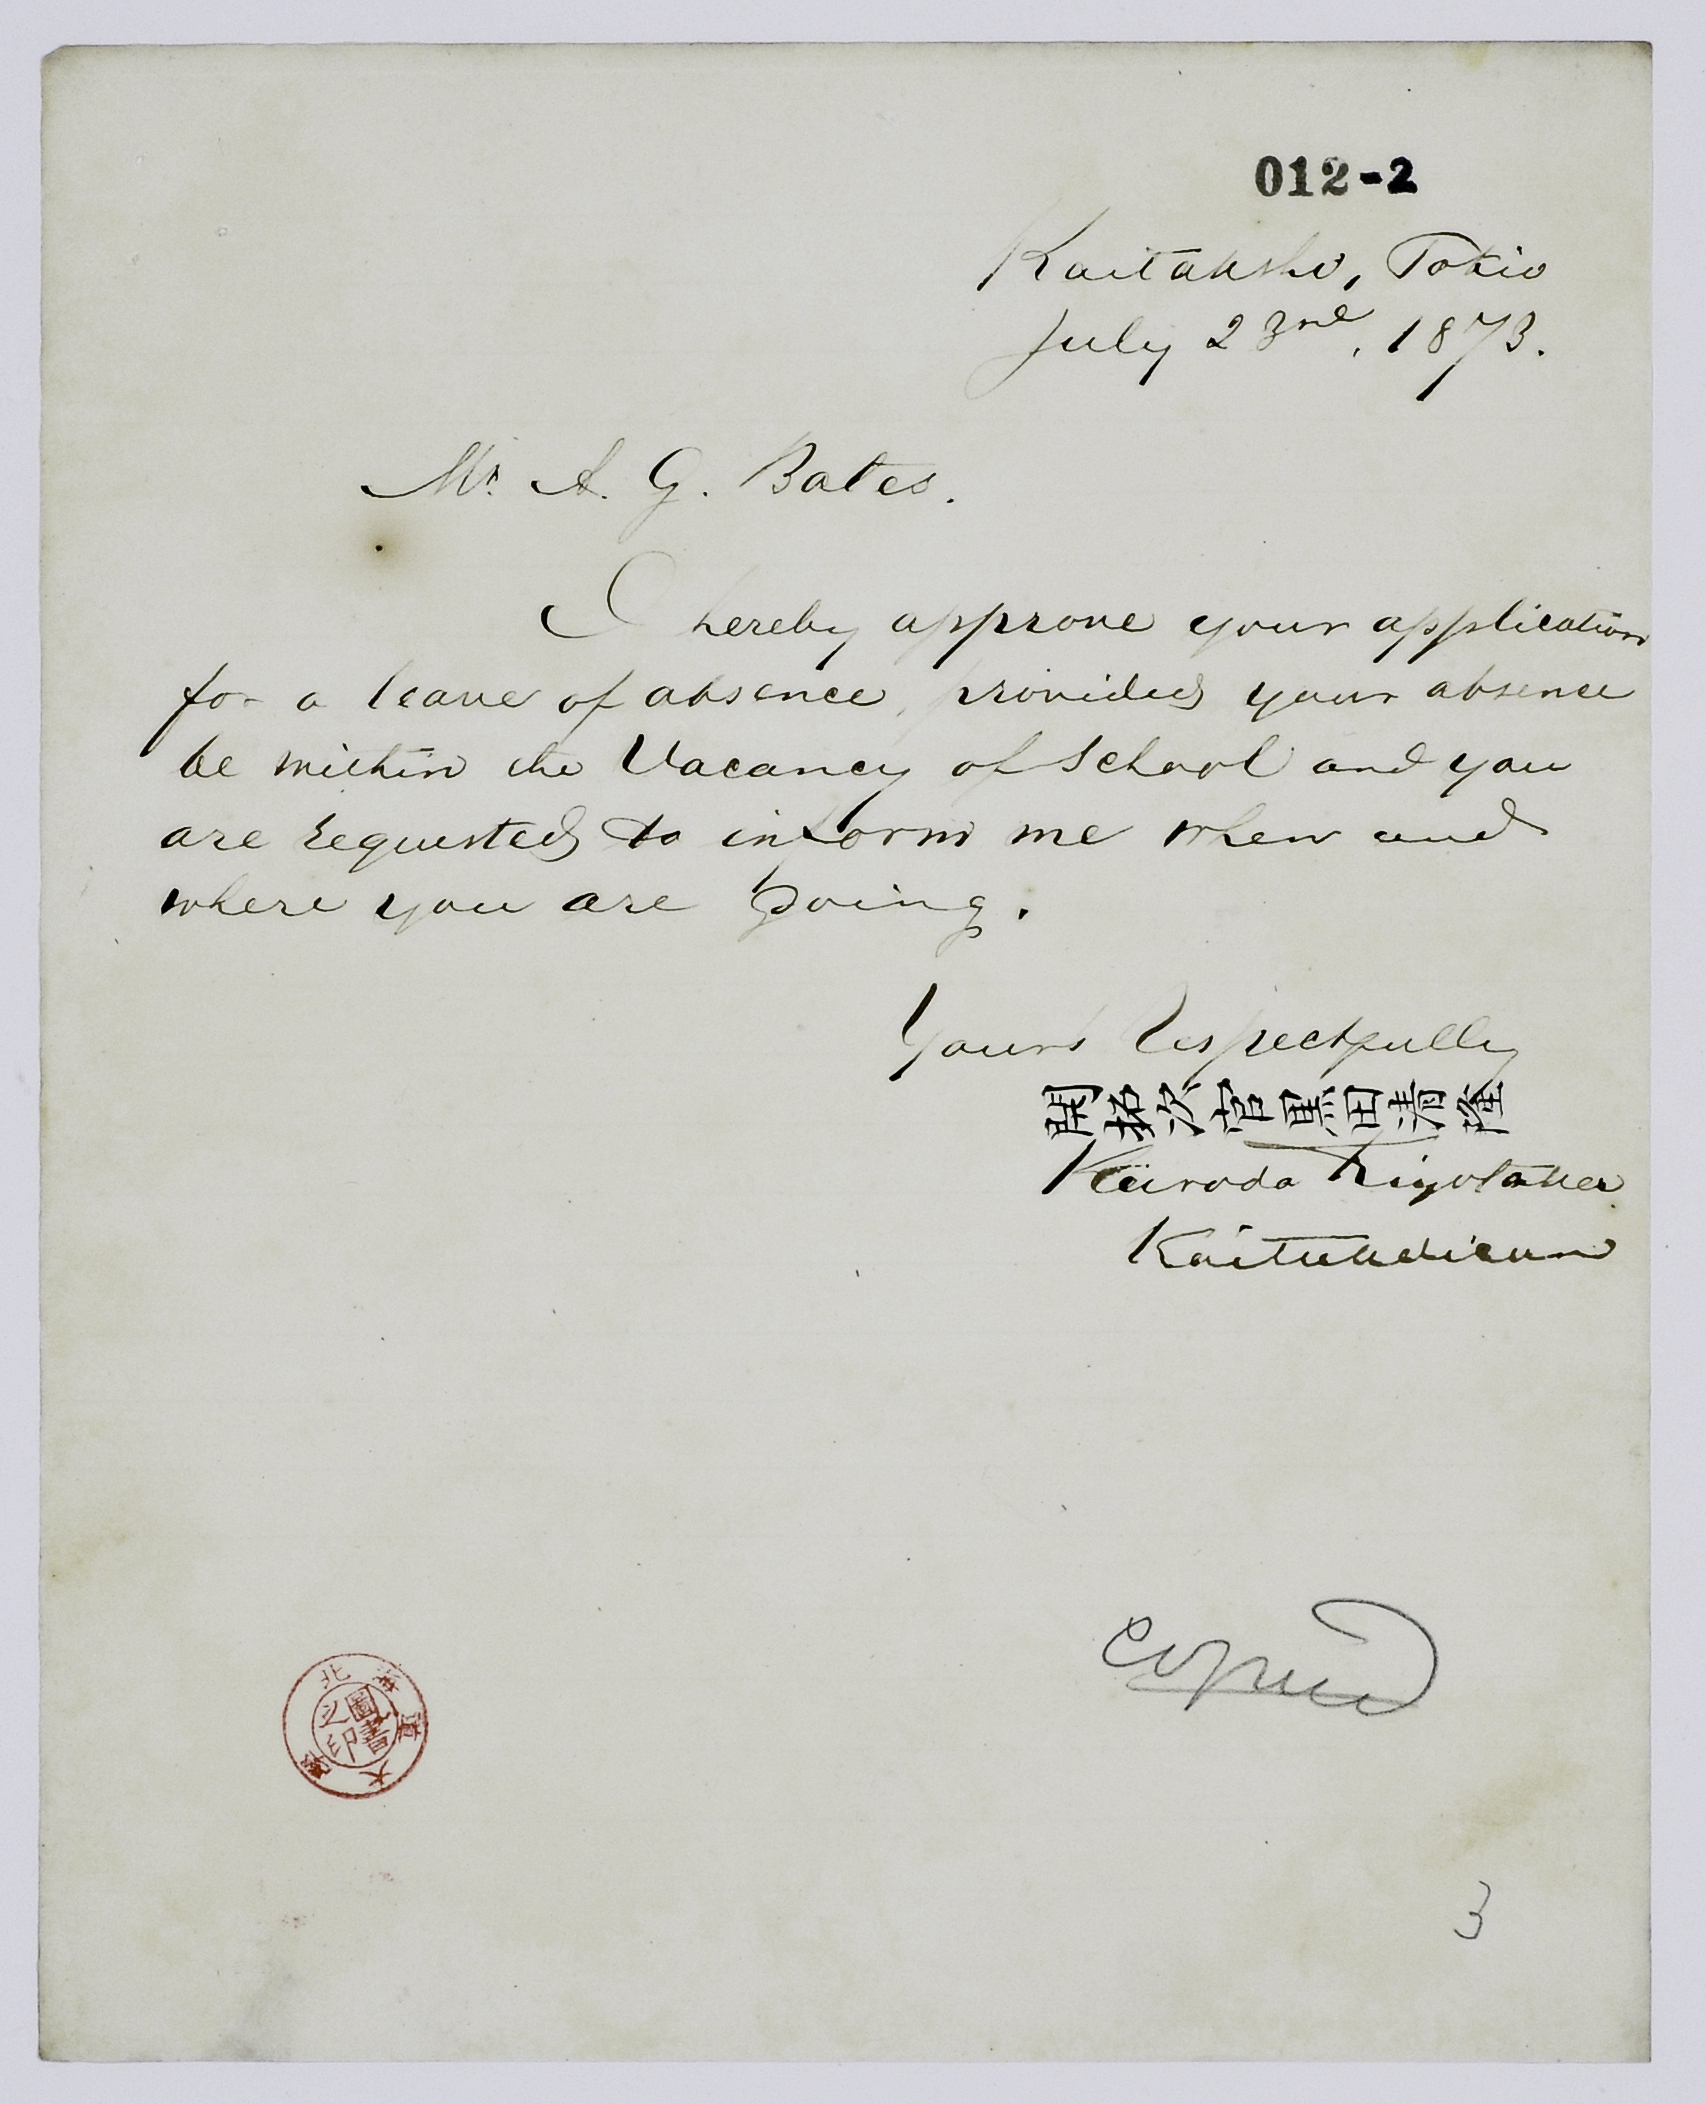 012-2
Kaitakshi, Tokio
July 23rd, 1873.
Mr. A. G. Bates.
I hereby approve your application
for a leave of absence, provided your absence
be within the Vacancy of School and you
are requested to inform me when and
where you are going.
Yours Respectfully
開拓次官黒田清隆
Kuroda Kiyotaka
Kaitakdican
copied
北海道大學
圖書之印
3